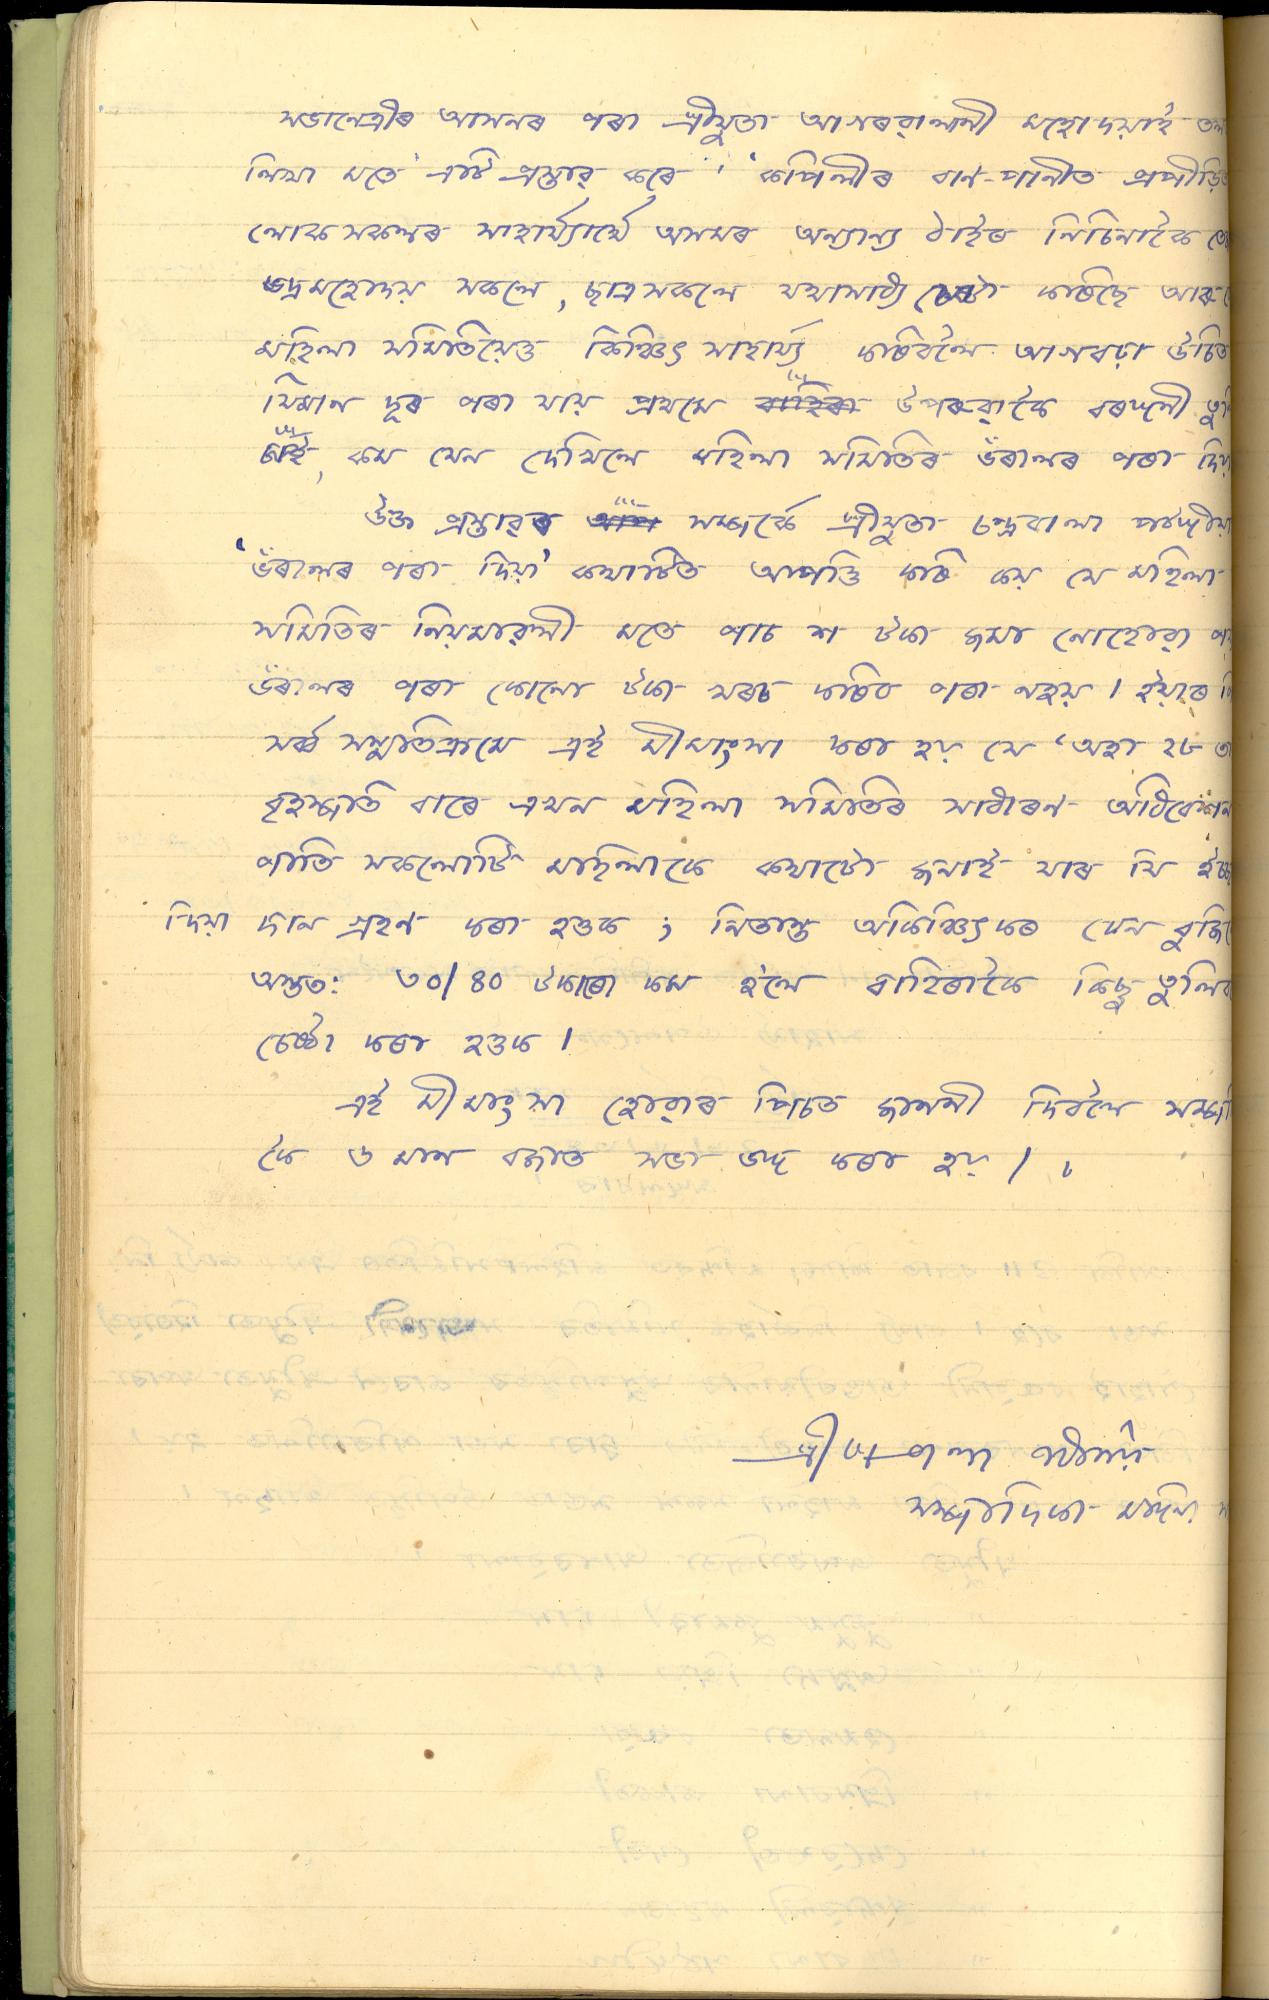 সভানেত্ৰীৰ আসনৰ পৰা শ্ৰীযুতা আগৰৱালানী মহোদয়াই তল
লিখা মতে এটি প্ৰস্তাৱ কৰে। 'কপিলীৰ বান-পানীত প্ৰপীড়িত
লোক সকলৰ সাহাৰ্য্যাৰ্থে অসমৰ অন্যান্য ঠাইৰ নিচিনাকৈ
ভদ্ৰমহোদয় সকলে, ছাত্ৰসকলে যথাসাধ্য চেষ্টা কৰিছে আৰু
মহিলা সমিতিয়েও কিঞ্চিৎ সাহাৰ্য্য কৰিবলৈ আগবঢ়া উচিত
যিমান দূৰ পৰা যায় প্ৰথমে বাহিৰা উপৰুৱাকৈ বৰঙনী তুলি
চাই, কম যেন দেখিলে মহিলা সমিতিৰ ভঁৰালৰ পৰা দিয়া
উক্ত প্ৰস্তাৱৰ সম্পৰ্কে শ্ৰীযুতা চন্দ্ৰবালা
'ভঁৰালৰ পৰা দিয়া' কথাটিত আপত্তি কৰি কয় যে মহিলা
সমিতিৰ নিয়মাৱলী মতে পাচ শ টকা জমা নোহোৱা
ভঁৰালৰ পৰা কোনো টকা খৰচ কৰিব পৰা নহয়। ইয়াৰ
সৰ্ব্ব সন্মতিক্ৰমে এই মীমাংসা কৰা হয় যে 'অহা ২৮
বৃহস্পতি বাৰে এখন মহিলা সমিতিৰ সাধাৰণ অধিবেশন
পাতি সকলোটি মহিলাকে কথাটো জনাই যাৰ যি ইচ্ছা
দিয়া দান গ্ৰহণ কৰা হওক; নিতান্ত অকিঞ্চিৎকৰ যেন বুজিলে
অন্ততঃ ৩০/৪০ টকাৰো কম হ'লে বাহিৰাকৈ কিছু তুলিব
চেষ্টা কৰা হওক।
এই মীমাংসা হোৱাৰ পিচত জাননী দিবলৈ
কৈ ৬ মান বজাত সভা ভঙ্গ কৰা হয়।
সম্পাদিকা মহিলা